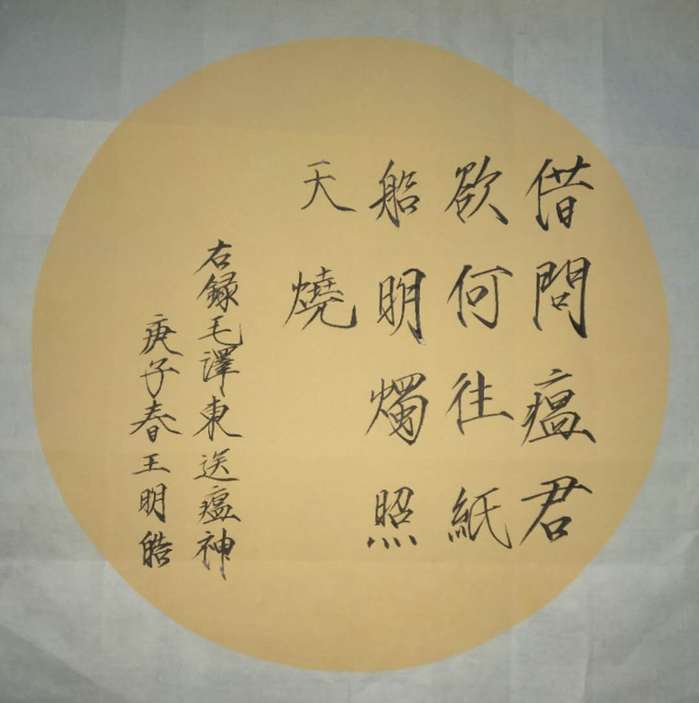 借問瘟君
欲何往紙
船明燭照
天燒
右録毛澤東送瘟神
庚子春王明皓